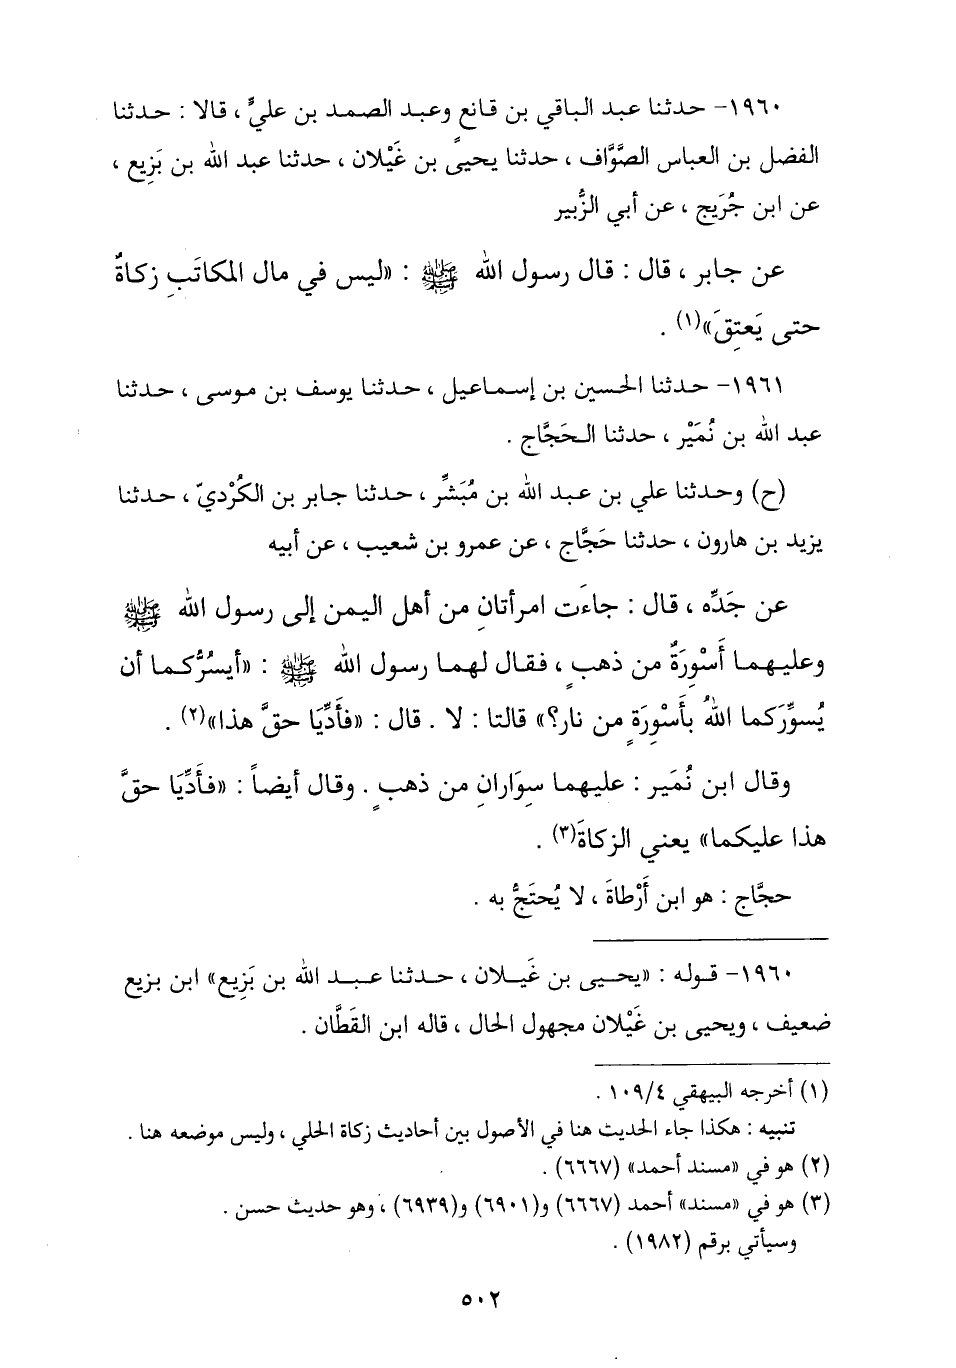 ١٩٦٠- حدثنا عبد الباقي بن قانعٍ وعبد الصمد بن عليٍّ ، قالا : حدثنا
الفضل بن العباس الصَّوَّاف ، حدثنا يحيى بن غَيْلان ، حدثنا عبد الله بن بَزِيع ،
عن ابن جُرَيج ، عن أبي الزُّبير
عن جابر ، قال : قال رسول الله ﷺ : «ليس في مال المكاتَبِ زكاةٌ
حتى يَعتِقَ»(١) .
١٩٦١- حدثنا الحسين بن إسماعيل ، حدثنا يوسف بن موسى ، حدثنا
عبد الله بن نُمَيْر ، حدثنا الحَجَّاج .
(ح) وحدثنا علي بن عبد الله بن مُبَشِّر ، حدثنا جابر بن الكُرْديّ ، حدثنا
يزيد بن هارون ، حدثنا حَجَّاج ، عن عمرو بن شعيب ، عن أبيه
عن جَدِّه ، قال : جاءَت امرأتانِ من أهل اليمن إلى رسول الله ﷺ
وعليهما أَسْوِرَةٌ من ذهبٍ ، فقال لهما رسول الله ﷺ : «أيسُرُّكما أن
يُسوِّرَكما اللهُ بأَسْوِرَةٍ من نار؟» قالتا : لا . قال : «فأَدِّيَا حقَّ هذا»(٢) .
وقال ابن نُمَير : عليهما سِوَارانِ من ذهبٍ . وقال أيضاً : «فأَدِّيَا حقَّ
هذا عليكما» يعني الزكاةَ(٣) .
حجَّاج : هو ابن أَرْطاةَ ، لا يُحتَجُّ به .
١٩٦٠- قوله : «يحيى بن غَيلان ، حدثنا عبد الله بن بَزِيع» ابن بزيع
ضعيف ، ويحيى بن غَيْلان مجهول الحال ، قاله ابن القَطَّان .
(١) أخرجه البيهقي ١٠٩/٤ .
تنبيه : هكذا جاء الحديث هنا في الأصول بين أحاديث زكاة الحلي ، وليس موضعه هنا .
(٢) هو في «مسند أحمد» (٦٦٦٧) .
(٣) هو في «مسند» أحمد (٦٦٦٧) و(٦٩٠١) و(٦٩٣٩) ، وهو حديث حسن .
وسيأتي برقم (١٩٨٢) .
٥٠٢